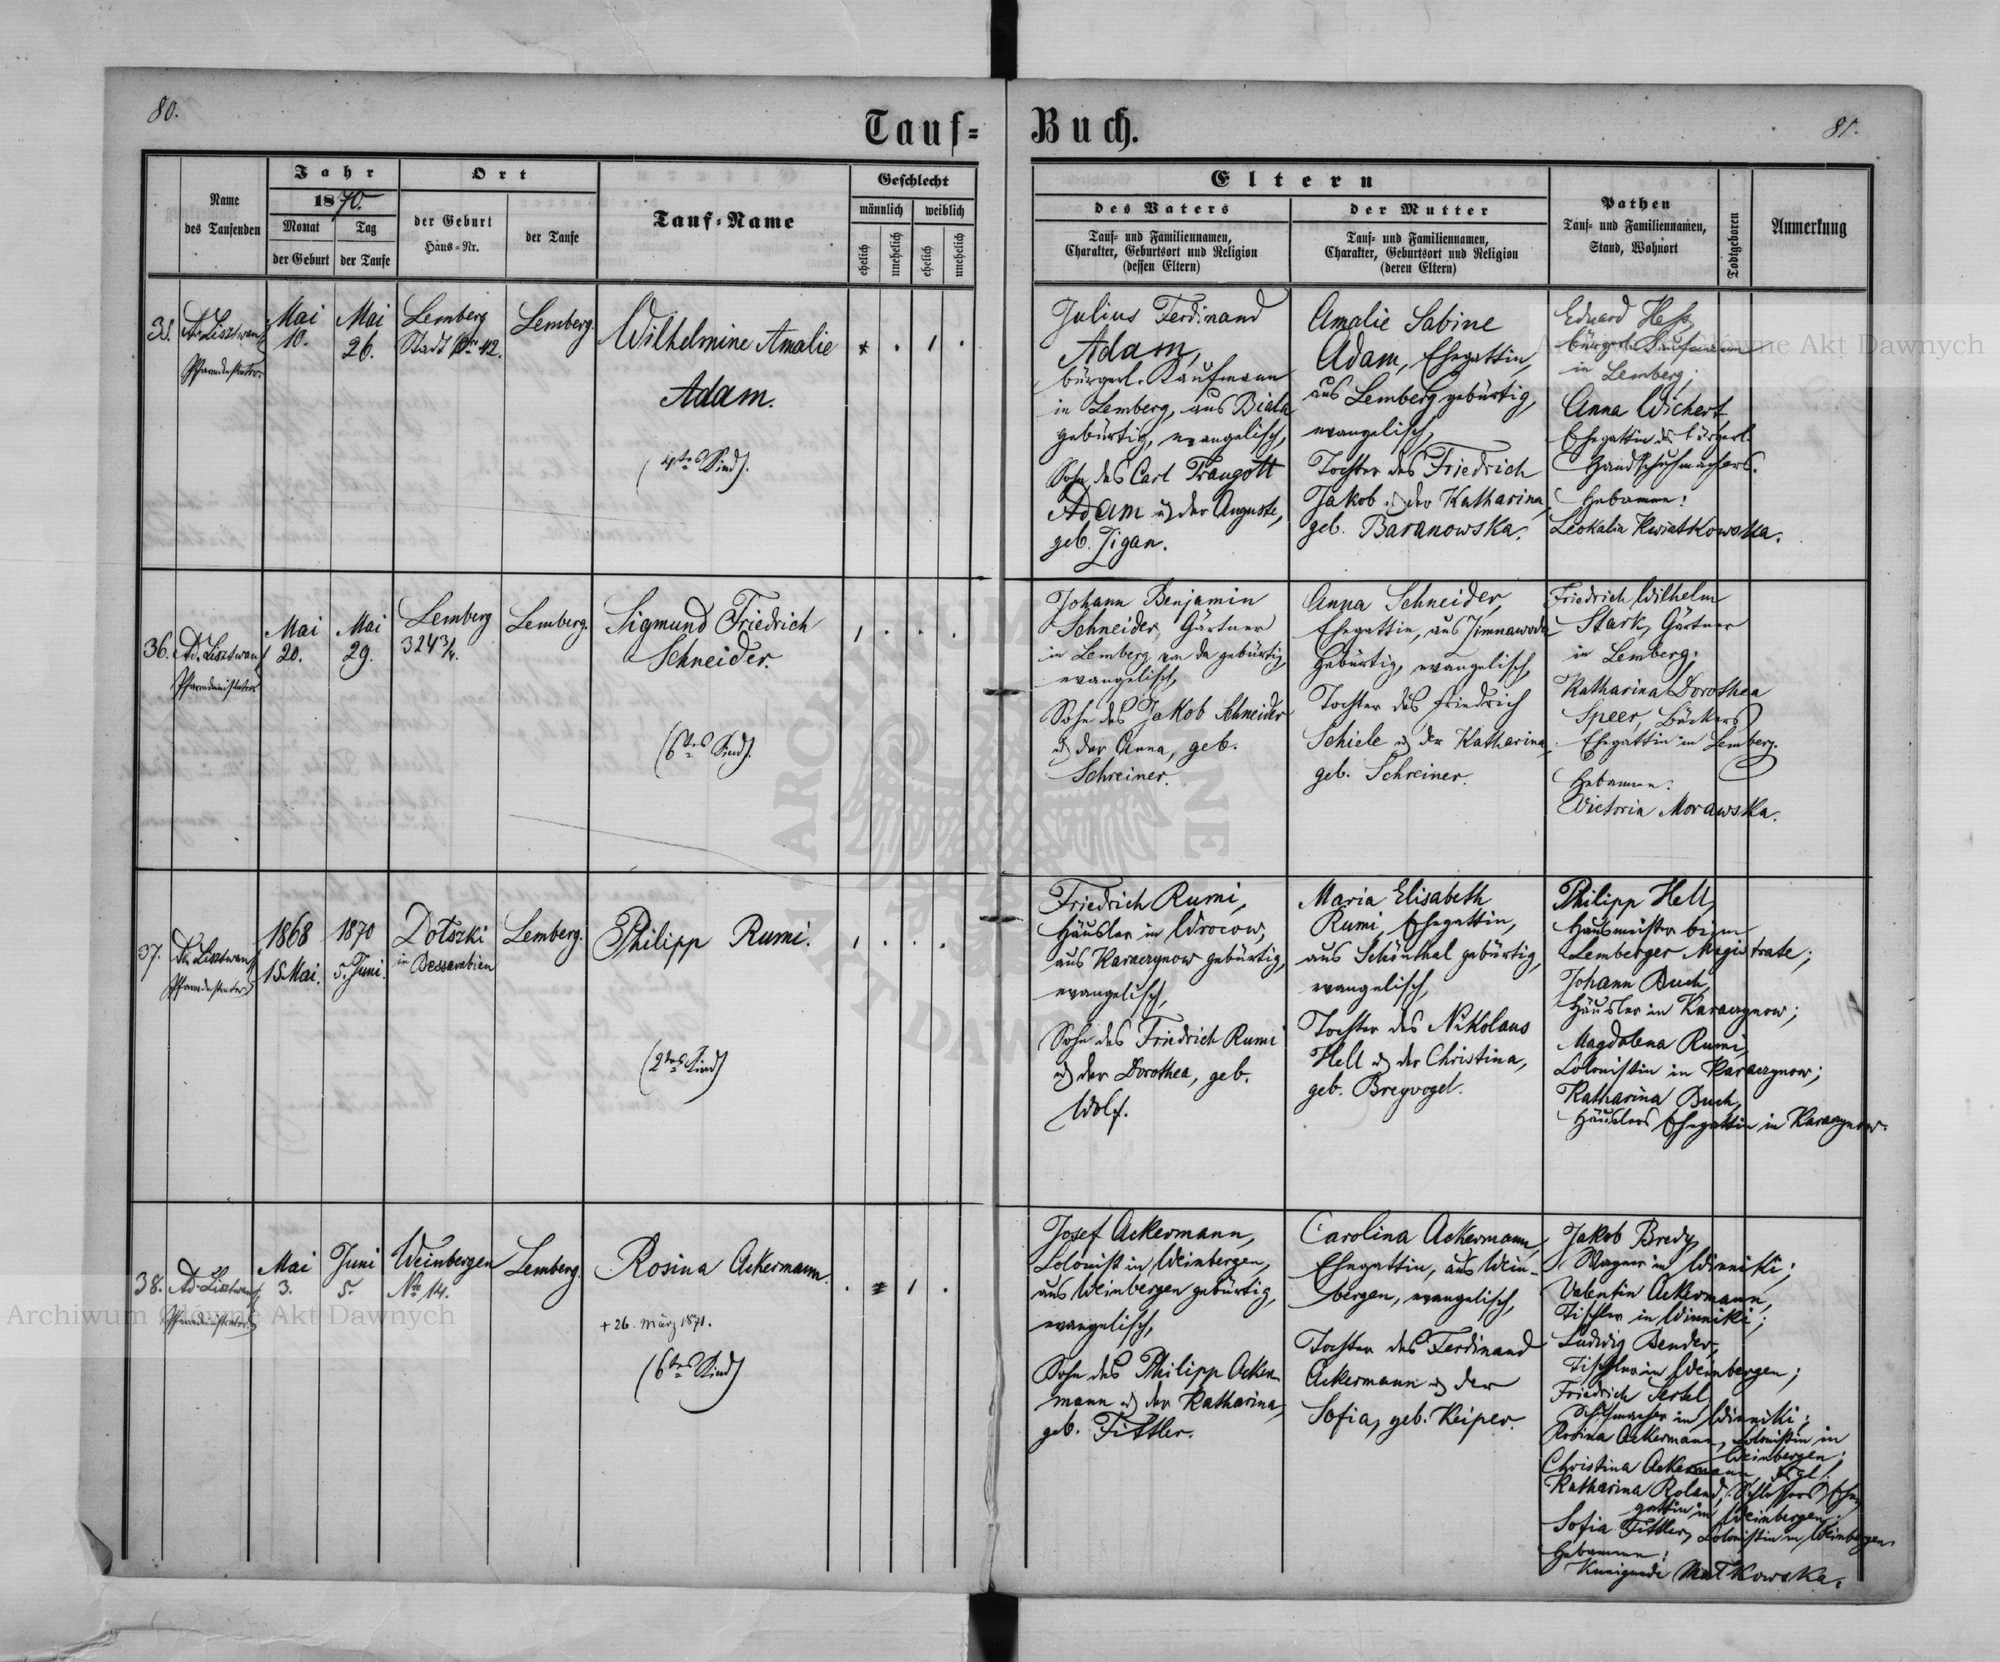 80.
Tauf=
Buch.
81.
Name
des Taufenden
Jahr
1870.
Monat
der Geburt
Tag
der Taufe
Ort
der Geburt
Haus=Nr.
der Taufe
Tauf=Name
Geschlecht
männlich
weiblich
ehelich
unehelich
ehelich
unehelich
Eltern
des Vaters
Tauf= und Familiennamen,
Charakter, Geburtsort und Religion
(dessen Eltern)
der Mutter
Tauf= und Familiennamen,
Charakter, Geburtsort und Religion
(deren Eltern)
Pathen
Tauf= und Familiennamen,
Stand, Wohnort
Todtgeboren
Anmerkung
35.
Mai
10.
Mai
26.
Lemberg
Stadt No 42.
Lemberg.
Wilhelmine Amalie
Adam.
(4tes Kind).
Julius Ferdinand
Adam,
bürgerl. Kaufmann
in Lemberg, aus Biala
gebürtig, evangelisch,
Sohn des Carl Traugott
Adam u. der Auguste,
geb. Zigan.
Amalie Sabine
Adam, Ehegattin,
aus Lemberg gebürtig,
evangelisch,
Tochter des Friedrich
Jakob u. der Katharina,
geb. Baranowska.
Eduard
bürgerl. Kaufmann
in Lemberg;
Anna Wichert
Ehegattin des bürgerl.
Handschuhmachers.
Hebamme:
Leokalia Kwiatkowska.
36.
Ad. Lisztwan
Pfarradministrator
Mai
20.
Mai
29.
Lemberg
324 3/4.
Lemberg.
Sigmund Friedrich
Schneider.
(6tes Kind).
Johann Benjamin
Schneider, Gärtner
in Lemberg, von da gebürtig,
evangelisch,
Sohn des Jakob Schneider
u. der Anna, geb.
Schreiner.
Anna Schneider,
Ehegattin, aus Zimnawoda
gebürtig, evangelisch,
Tochter des Friedrich
Schiele u. der Katharina,
geb. Schreiner.
Friedrich Wilhelm
Stark, Gärtner
in Lemberg;
Katharina Dorothea
Speer, Bäckers
Ehegattin in Lemberg.
Hebamme:
Victoria Morawska.
37.
Ad. Lisztwan
1868
15. Mai.
1870
5. Juni.
Dotszki
in Bessarabien
Lemberg.
Philipp Rumi.
(2tes Kind)
Friedrich Rumi,
Häusler in Wrocow,
aus Karaczynow gebürtig,
evangelisch,
Sohn des Friedrich Rumi
u. der Dorothea, geb.
Wolf.
Maria Elisabeth
Rumi, Ehegattin,
aus Schönthal gebürtig,
evangelisch,
Tochter des Nikolaus
Hell u. der Christina,
geb. Breyvogel.
Philipp Hell,
Hausmeister beim
Lemberger Magistrate;
Johann Buch,
Häusler in Karaczynow;
Magdalena Rumi,
Colonistin in Karaczynow;
Katharina Buch,
Häuslers Ehegattin in Karaczynow.
38.
Ad. Lisztwan
Pfarradministrator
Mai
3.
Juni
5.
Weinbergen
No 14.
Lemberg.
Rosina Ackermann.
+ 26. März 1871.
(6tes Kind)
Josef Ackermann,
Colonist in Weinbergen,
aus Weinbergen gebürtig,
evangelisch,
Sohn des Philipp Acker-
mann u. der Katharina,
geb. Fittler.
Carolina Ackermann,
Ehegattin, aus Wein-
bergen, evangelisch,
Tochter des Ferdinand
Ackermann u. der
Sofia, geb. Keiper.
Jakob Bredy,
Wagner in Winniki;
Valentin Ackermann,
Tischler in Winniki;
Ludwig Bender,
Tischler in Weinbergen;
Friedrich
Schuhmacher in Winniki;
Rosina Ackermann, Colonistin in
Weinbergen;
Christina Ackermann, dsgl.
Katharina Roland, Schlossers Ehe-
gattin in Weinbergen;
Sofia Fittler, Colonistin in Weinbergen.
Hebamme:
Kunigunde Matkowska.
Archiwum Główne Akt Dawnych
Archiwum Główne Akt Dawnych